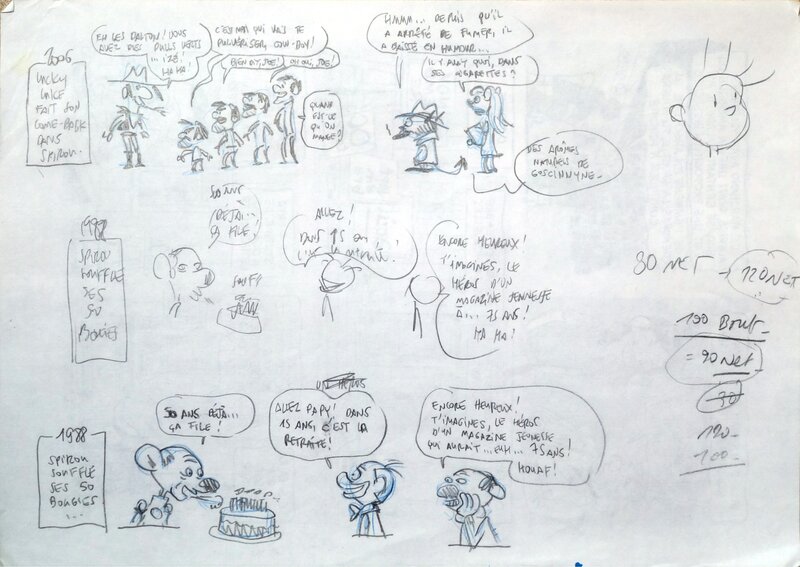 2006
LUCKY
LUKE
FAIT SON
COME-BACK
DANS
SPIROU.
EH LES DALTON! VOUS
AVEZ DES PULLS VERTS
HA HA!
C'EST MOI QUI VAIS TE
PULVÉRISER, COW-BOY!
BIEN DIT, JOE!
OUI OUI, JOE.
QUAND
EST-CE
QU'ON
MANGE?
HMMM... DEPUIS QU'IL
A ARRÊTÉ DE FUMER, IL
A BAISSÉ EN HUMOUR...
IL Y AVAIT QUOI, DANS
SES CIGARETTES?
DES ARÔMES
NATURELS DE
GOSCINNYNE.
1988
SPIROU
SOUFFLE
SES
50
BOUGIES
50 ANS
DÉJÀ...
ÇA FILE!
ALLEZ!
DANS 15 ans
c'est la retraite!
ENCORE HEUREUX!
T'IMAGINES, LE
HÉROS D'UN
MAGAZINE JEUNESSE
À... 75 ANS!
HA HA!
30 NET → 120 NET
100 Brut
= 90 Net
120
100
1988
SPIROU
SOUFFLE
SES 50
BOUGIES
...
50 ANS DÉJÀ...
ÇA FILE!
UN HÉROS
ALLEZ PAPY! DANS
15 ANS, C'EST LA
RETRAITE!
ENCORE HEUREUX!
T'IMAGINES, LE HÉROS
D'UN MAGAZINE JEUNESSE
QUI AURAIT... EUH... 75 ANS!
HOUAF!